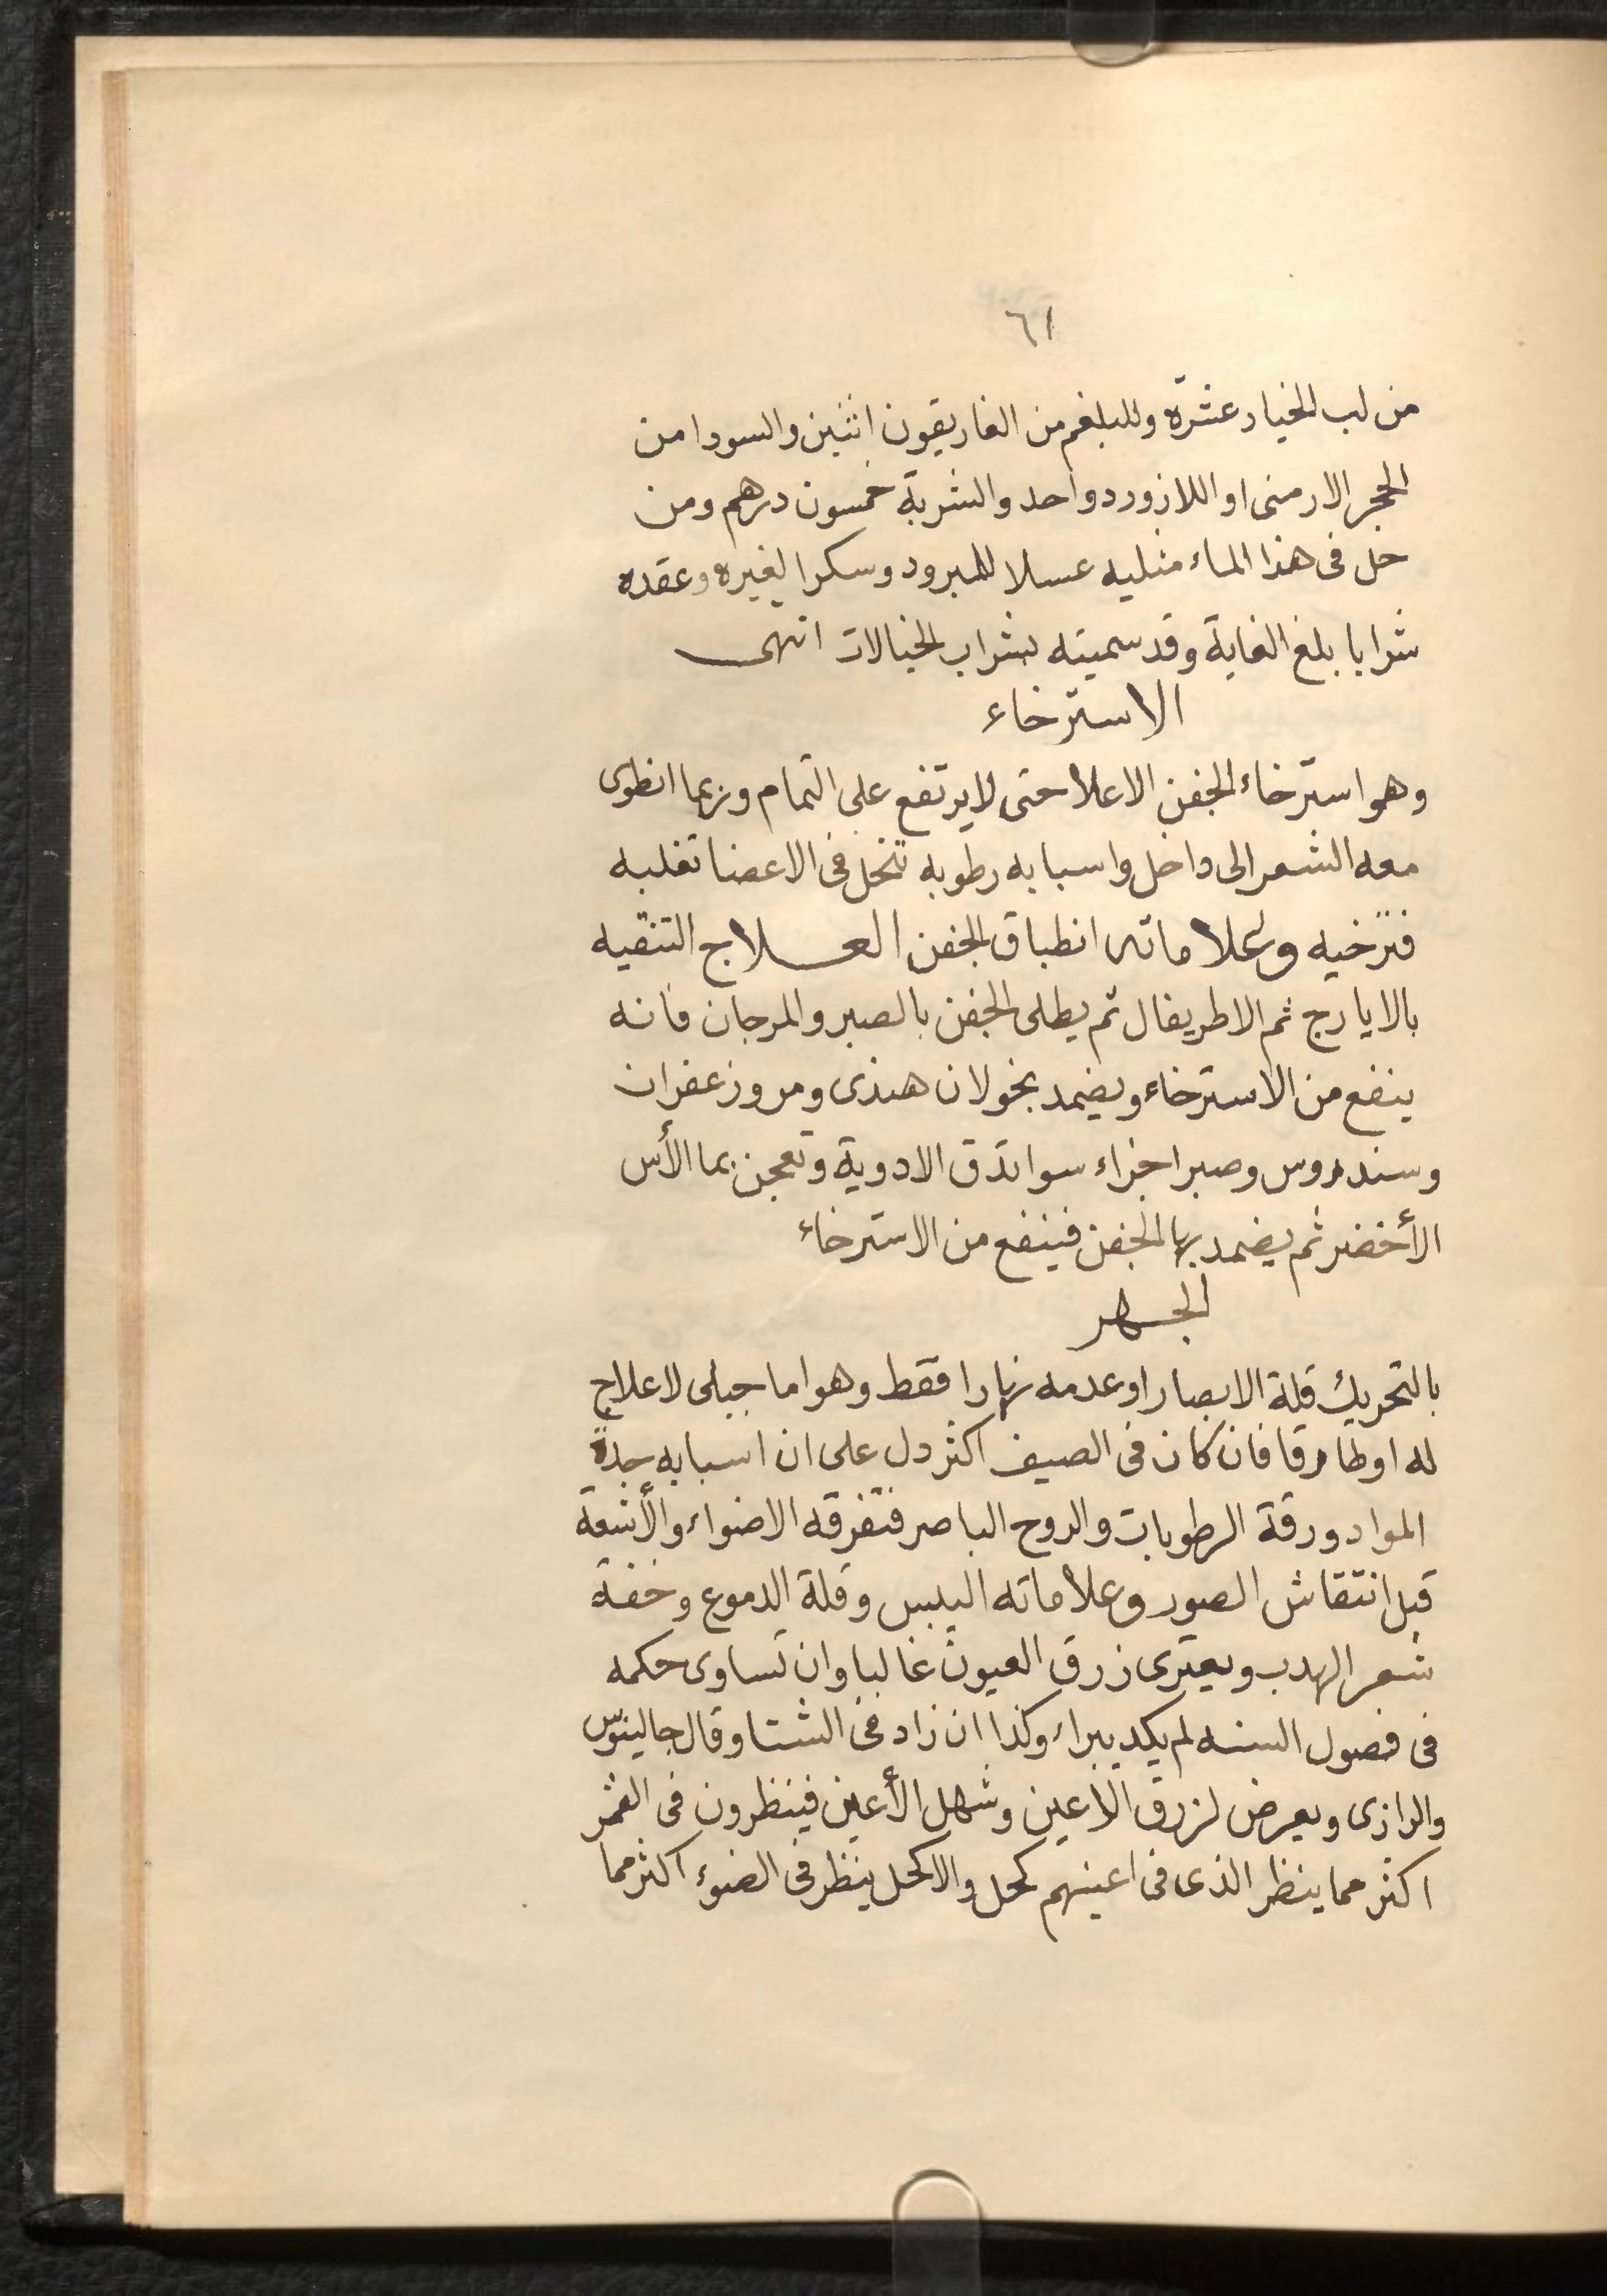 ٦١
من لب الخيار عشرة وللبلغم من الغاريقون اثنين والسودا من
الحجر الارمنى او اللازورد واحد والشربة خمسون درهم ومن
حل فى هذا الماء مثليه عسلا للمبرود وسكرا لغيره وعقده
شرابا بلغ الغاية وقد سميته بشراب الخيالات انتهى
الاسترخاء
وهو استرخاء الجفن الاعلا حتى لا يرتفع على التمام وربما انطوى
معه الشعر الى داخل واسبابه رطوبه تنحل فى الاعضا تغلبه
فترخيه وعلاماته انطباق الجفن العلاج التنقيه
بالايارج ثم الاطريفال ثم يطلى الجفن بالصبر والمرجان فانه
ينفع من الاسترخاء ويضمد بخولان هندى ومر وزعفران
وسندروس وصبر اجزاء سوا تدق الادوية وتعجن بما الأس
الأخضر ثم يضمد بها الجفن فينفع من الاسترخاء
الجهر
بالتحريك قلة الابصار او عدمه نهارا فقط وهو اما جبلى لا علاج
له او طارقا فان كان فى الصيف اكثر دل على ان اسبابه حدة
المواد ورقة الرطوبات والروح الباصر فتفرقه الاضواء والأشعة
قبل انتقاش الصور وعلاماته اليبس وقلة الدموع وخفة
شعر الهدب ويعترى زرق العيون غالبا وان تساوى حكمه
فى فصول السنه لم يكد يبراء وكذا ان زاد فى الشتا وقال جالينوس
والرازى ويعرض لزرق الاعين وشهل الأعين فينظرون فى القمر
اكثر مما ينظر الذى فى اعينهم كحل والاكحل ينظر فى الضوء اكثر مما